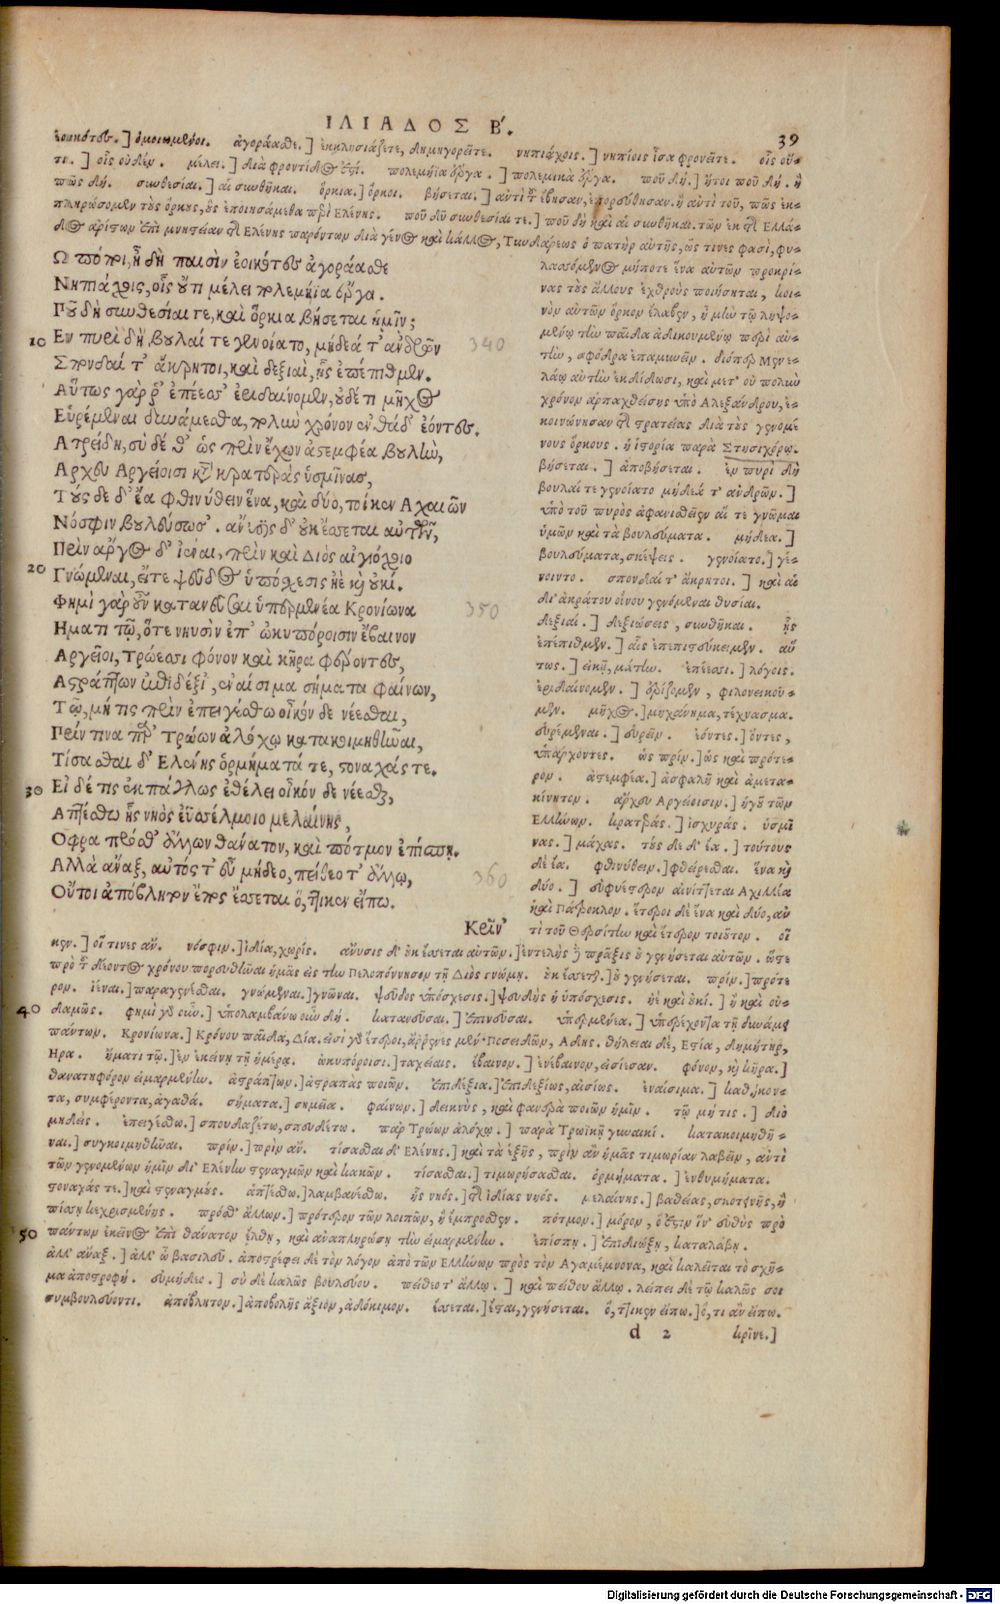 ΙΛΙΑΔΟΣ Β´.
39
ἐοικότες.] ὁμοιωμένοι. ἀγοράασθε.] ἐκκλησιάζετε, δημηγορεῖτε. νηπιάχοις.] νηπίοις ἶσα φρονεῖτε. οἷς οὔ-
τι.] οἷς οὐδέν. μέλει.] διὰ φροντίδος ἐστί. πολεμήϊα ἔργα.] πολεμικὰ ἔργα. ποῦ δή.] ἤτοι ποῦ δή. ἢ
πῶς δή. συνθεσίαι.] αἱ συνθῆκαι. ὅρκια.] ὅρκοι. βήσεται.] ἀντὶ τοῦ ἔβησαν, ἐπορεύθησαν. ἢ ἀντὶ τοῦ, πῶς ἐκ-
πληρώσομεν τοὺς ὅρκους, οὓς ἐποιησάμεθα περὶ Ελένης. ποῦ δὴ συνθεσίαι τε.] ποῦ δὴ καὶ αἱ συνθῆκαι. τῶν ἐκ τῆς Ελλά-
δος ἀρίστων ἐπὶ μνηστείαν τῆς Ελένης παρόντων διὰ γένος καὶ κάλλος, Τυνδάρεως ὁ πατὴρ αὐτῆς, ὥς τινες φασὶ, φυ-
Ω πόποι, ἦ δὴ παισὶν ἐοικότες ἀγοράασθε
Νηπιάχοις, οἷς οὔτι μέλει πολεμήϊα ἔργα.
Ποῦ δὴ συνθεσίαι τε, καὶ ὅρκια βήσεται ἡμῖν;
10 Εν πυρὶ δὴ βουλαί τε γενοίατο, μήδεά τ' ἀνδρῶν 340
Σπονδαί τ' ἄκρητοι, καὶ δεξιαὶ, ᾗς ἐπέπιθμεν.
Αὔτως γὰρ ῥ' ἐπέεσσ' ἐριδαίνομεν, οὐδέ τι μῆχος
Εὑρέμεναι δυνάμεσθα, πολὺν χρόνον ἐνθάδ' ἐόντες.
Ατρείδη, σὺ δέ θ' ὡς πρὶν ἔχων ἀστεμφέα βουλὴν,
Αρχευ Αργείοισι κατὰ κρατερὰς ὑσμίνας,
Τούς δε δ' ἔα φθινύθειν ἕνα, καὶ δύο, τοί κεν Αχαιῶν
Νόσφιν βουλεύωσ'. ἄνυσις δ' οὐκ ἔσσεται αὐτῶν,
Πρὶν αργος δ' ἰέναι, πρὶν καὶ Διὸς αἰγιόχοιο
20 Γνώμεναι, εἴτε ψεῦδος ὑπόσχεσις ἠὲ καὶ οὐκί.
Φημὶ γὰρ οὖν κατανεῦσαι ὑπερμενέα Κρονίωνα 350
Ηματι τῷ, ὅτε νηυσὶν ἐπ' ὠκυπόροισιν ἔβαινον
Αργεῖοι, Τρώεσσι φόνον καὶ κῆρα φέροντες,
Αστράπτων ἐπιδέξι', ἐναίσιμα σήματα φαίνων,
Τῷ, μή τις πρὶν ἐπειγέσθω οἶκόν δε νέεσθαι,
Πρίν τινα πὰρ Τρώων ἀλόχῳ κατακοιμηθῆναι,
Τίσασθαι δ' Ελένης ὁρμήματά τε, στοναχάς τε.
30 Εἰ δέ τις ἐκπάγλως ἐθέλει οἶκόν δε νέεσθαι,
Απτέσθω ἧς νηὸς ἐϋσσέλμοιο μελαίνης,
Οφρα πρόσθ' ἄλλων θάνατον, καὶ πότμον ἐπίσπῃ.
Αλλὰ ἄναξ, αὐτός τ' εὖ μήδεο, πείθεό τ' ἄλλῳ, 360
Οὔτοι ἀπόβλητον ἔπος ἔσσεται ὅ,ττι κεν εἴπω.
Κρῖν'
λασσόμενος μήποτε ἕνα αὐτῶν προκρί-
νας τοὺς ἄλλους ἐχθροὺς ποιήσηται, κοι-
νὸν αὐτῶν ὅρκον ἔλαβεν, ἦ μὴν τῷ ληψο-
μένῳ τὴν παῖδα ἀδικουμένῳ περὶ αὐ-
τὴν, σφόδρα ἐπαμυνεῖν. διόπερ Μενε-
λάῳ αὐτὴν ἐκδίδωσι, καὶ μετ' οὐ πολὺν
χρόνον ἁρπαχθείσης ὑπὸ Αλεξάνδρου, ἐ-
κοινώνησαν τῆς στρατείας διὰ τοὺς γενομέ-
νους ὅρκους. ἡ ἱστορία παρὰ Στησιχόρῳ.
βήσεται.] ἀποβήσεται. ἐν πυρὶ δὴ
βουλαί τε γενοίατο μήδεά τ' ἀνδρῶν.]
ὑπὸ τοῦ πυρὸς ἀφανισθεῖεν αἵ τε γνῶμαι
ὑμῶν καὶ τὰ βουλεύματα. μήδεα.]
βουλεύματα, σκέψεις. γενοίατο.] γέ-
νοιντο. σπονδαί τ' ἄκρητοι.] καὶ αἱ
δι' ἀκράτου οἴνου γενόμεναι θυσίαι.
δεξιαί.] δεξιώσεις, συνθῆκαι. ᾗς
ἐπέπιθμεν.] αἷς ἐπεπιστεύκειμεν. αὔ
τως.] εἰκῇ, μάτην. ἐπέεσσι.] λόγοις.
ἐριδαίνομεν.] ἐρίζομεν, φιλονεικοῦ-
μεν. μῆχος.] μηχάνημα, τέχνασμα.
εὑρέμεναι.] εὑρεῖν. ἐόντες.] ὄντες,
ὑπάρχοντες. ὡς πρίν.] ὡς καὶ πρότε-
ρον. ἀστεμφέα.] ἀσφαλῆ καὶ ἀμετα-
κίνητον. ἄρχευ Αργείοισιν.] ἡγοῦ τῶν
Ελλήνων. κρατεράς.] ἰσχυράς. ὑσμί
νας.] μάχας. τούς δε δ' ἔα.] τούτους
δὲ ἔα. φθινύθειν.] φθείρεσθαι. ἕνα καὶ
δύο.] εὐφυέστερον αἰνίττεται Αχιλλέα
καὶ Πάτροκλον. ἕτεροι δὲ ἕνα καὶ δύο, ἀν
τὶ τοῦ Θερσίτην καὶ ἕτερον τοιοῦτον. οἵ
κεν.] οἵ τινες ἄν. νόσφιν.] ἰδίᾳ, χωρίς. ἄνυσις δ' οὐκ ἔσσεται αὐτῶν.] ἐντελὴς ἡ πρᾶξις οὐ γενήσεται αὐτῶν. ὥστε
πρὸ τοῦ δέοντος χρόνου πορευθῆναι ἡμᾶς εἰς τὴν Πελοπόννησον τῇ Διὸς γνώμῃ. οὐκ ἔσσεται.] οὐ γενήσεται. πρίν.] πρότε
ρον. ἰέναι.] παραγενέσθαι. γνώμεναι.] γνῶναι. ψεῦδος ὑπόσχεσις.] ψευδὴς ἡ ὑπόσχεσις. ἠὲ καὶ οὐκί.] ἢ καὶ οὐ-
40 δαμῶς. φημὶ γὰρ οὖν.] ὑπολαμβάνω οὖν δή. κατανεῦσαι.] ἐπινεῦσαι. ὑπερμενέα.] ὑπερέχοντα τῇ δυνάμει
πάντων. Κρονίωνα.] Κρόνου παῖδα, Δία. εἰσὶ γὰρ ἕτεροι, ἄρρενες μὲν Ποσειδῶν, Αδης. θήλειαι δὲ, Εστία, Δημήτηρ,
Ηρα. ἤματι τῷ.] ἐν ἐκείνῃ τῇ ἡμέρᾳ. ὠκυπόροισι.] ταχείαις. ἔβαινον.] ἐνέβαινον, εἰσίεσαν. φόνον, καὶ κῆρα.]
θανατηφόρον εἱμαρμένην. ἀστράπτων.] ἀστραπὰς ποιῶν. ἐπιδέξια.] ἐπιδεξίως, αἰσίως. ἐναίσιμα.] καθήκον-
τα, συμφέροντα, ἀγαθά. σήματα.] σημεῖα. φαίνων.] δεικνὺς, καὶ φανερὰ ποιῶν ἡμῖν. τῷ μή τις.] διὸ
μηδείς. ἐπειγέσθω.] σπουδαζέτω, σπευδέτω. πὰρ Τρώων ἀλόχῳ.] παρὰ Τρωϊκῇ γυναικί. κατακοιμηθῆ-
ναι.] συγκοιμηθῆναι. πρίν.] πρὶν ἄν. τίσασθαι δ' Ελένης.] καὶ τὰ ἑξῆς, πρὶν ἂν ἡμᾶς τιμωρίαν λαβεῖν, ἀντὶ
τῶν γενομένων ἡμῖν δι' Ελένην στεναγμῶν καὶ κακῶν. τίσασθαι.] τιμωρήσασθαι. ὁρμήματα.] ἐνθυμήματα.
στοναχάς τε.] καὶ στεναγμούς. ἁπτέσθω.] λαμβανέσθω. ἧς νηός.] τῆς ἰδίας νηός. μελαίνης.] βαθείας, σκοτεινῆς, ἢ
πίσσῃ κεχρισμένης. πρόσθ' ἄλλων.] πρότερον τῶν λοιπῶν, ἢ ἔμπροσθεν. πότμον.] μόρον, ὅ ἐστιν ἵν' εὐθὺς πρὸ
50 πάντων ἐκεῖνος ἐπὶ θάνατον ἔλθῃ, καὶ ἀναπληρώσῃ τὴν εἱμαρμένην. ἐπίσπῃ.] ἐπιδιώξῃ, καταλάβῃ.
ἀλλ' ἄναξ.] ἀλλ' ὦ βασιλεῦ. ἀποστρέφει δὲ τὸν λόγον ἀπὸ τῶν Ελλήνων πρὸς τὸν Αγαμέμνονα, καὶ καλεῖται τὸ σχῆ-
μα ἀποστροφή. εὖ μήδεο.] σὺ δὲ καλῶς βουλεύου. πείθεό τ' ἄλλῳ.] καὶ πείθου ἄλλῳ. λείπει δὲ τῷ καλῶς σοι
συμβουλεύοντι. ἀπόβλητον.] ἀποβολῆς ἄξιον, ἀδόκιμον. ἔσσεται.] ἔσται, γενήσεται. ὅ,ττι κεν εἴπω.] ὅ,τι ἂν εἴπω.
d 2 κρῖνε.]
Digitalisierung gefördert durch die Deutsche Forschungsgemeinschaft - DFG